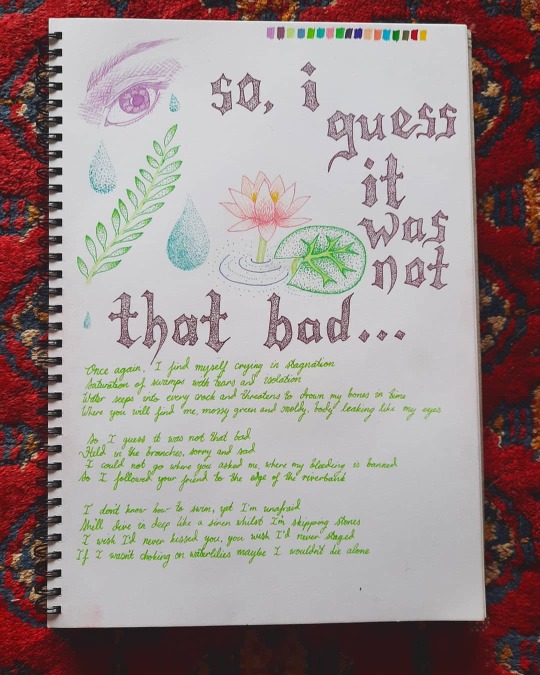 so, i
guess
it
was
not
that bad...
Once again, I find myself crying in stagnation
Saturation of swamps with tears and isolation
Water seeps into every crack and threatens to drown my bones in lime
Where you will find me, mossy green and moldy, body leaking like my eyes
So I guess it was not that bad
Held in the branches, sorry and sad
I could not go where you asked me, where my bleeding is banned
So I followed your friend to the edge of the riverbank
I don't know how to swim, yet I'm unafraid
She'll dive in deep like a siren whilst I'm skipping stones
I wish I'd never kissed you, you wish I'd never stayed
If I wasn't choking on waterlilies maybe I wouldn't die alone